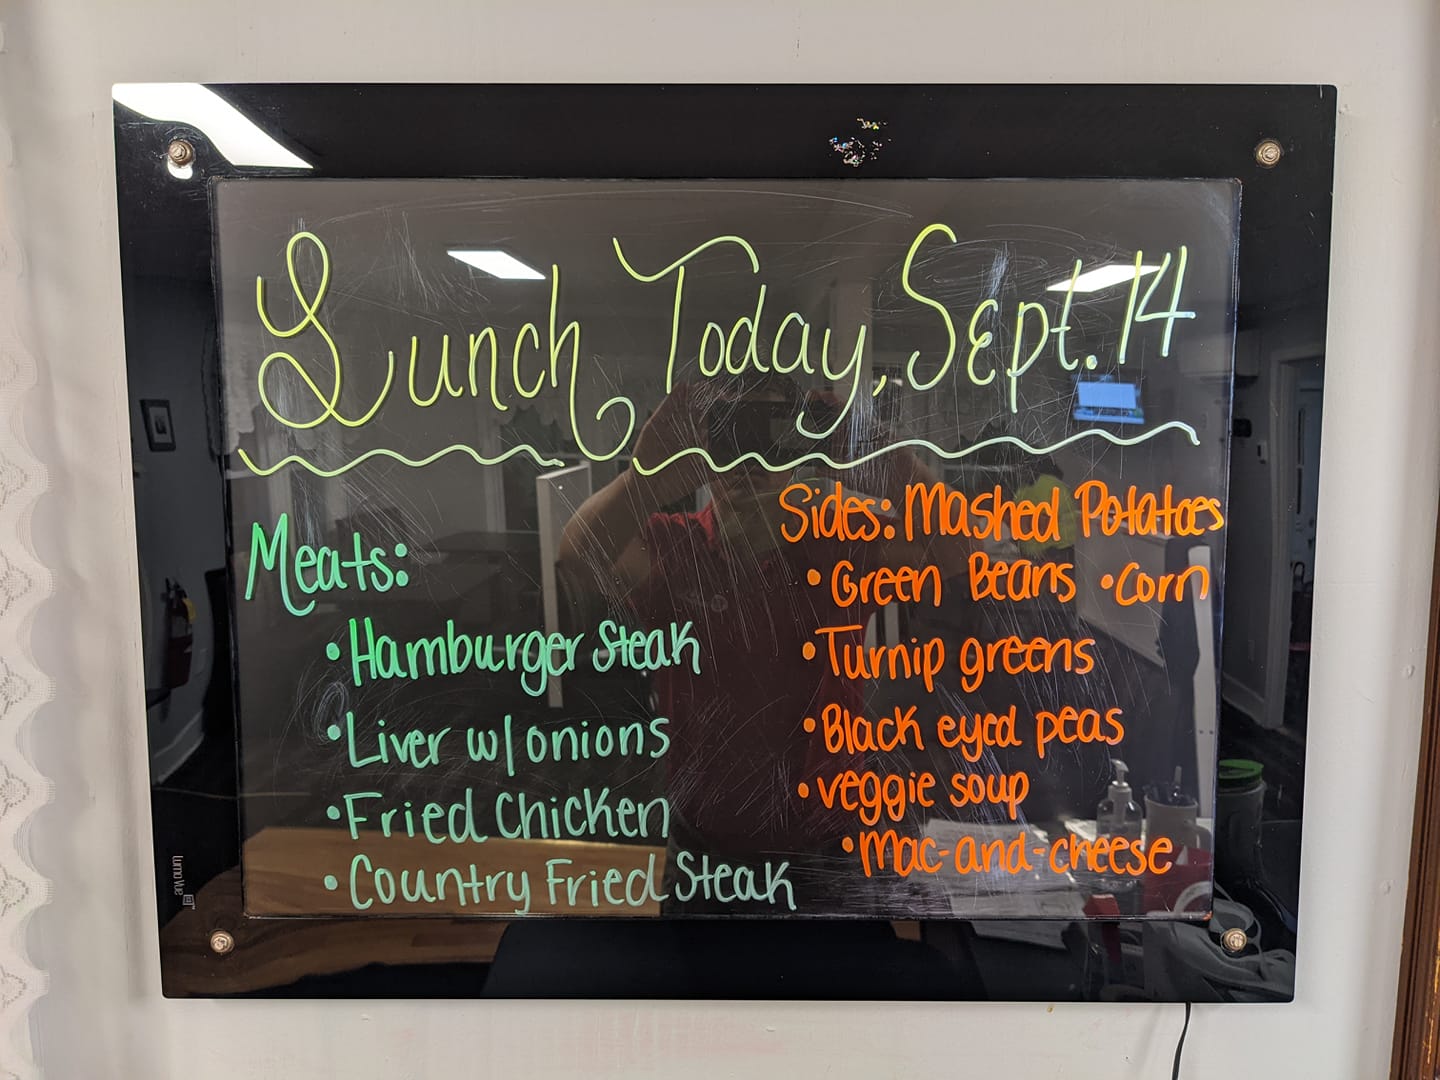 Lunch Today, Sept. 14
Meats:
• Hamburger Steak
• Liver w/ onions
• Fried Chicken
• Country Fried Steak
Sides: Mashed Potatoes
• Green Beans • Corn
• Turnip greens
• Black eyed peas
• veggie soup
• Mac-and-cheese
Lumo Vue